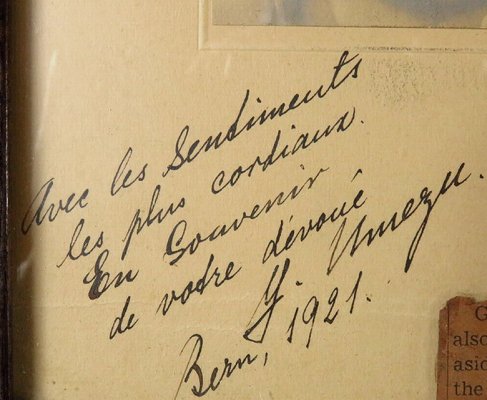 Avec les Sentiments
les plus cordiaux.
En Souvenir
de votre dévoué
Y. Umezu.
Bern, 1921.
G
also
asid
the